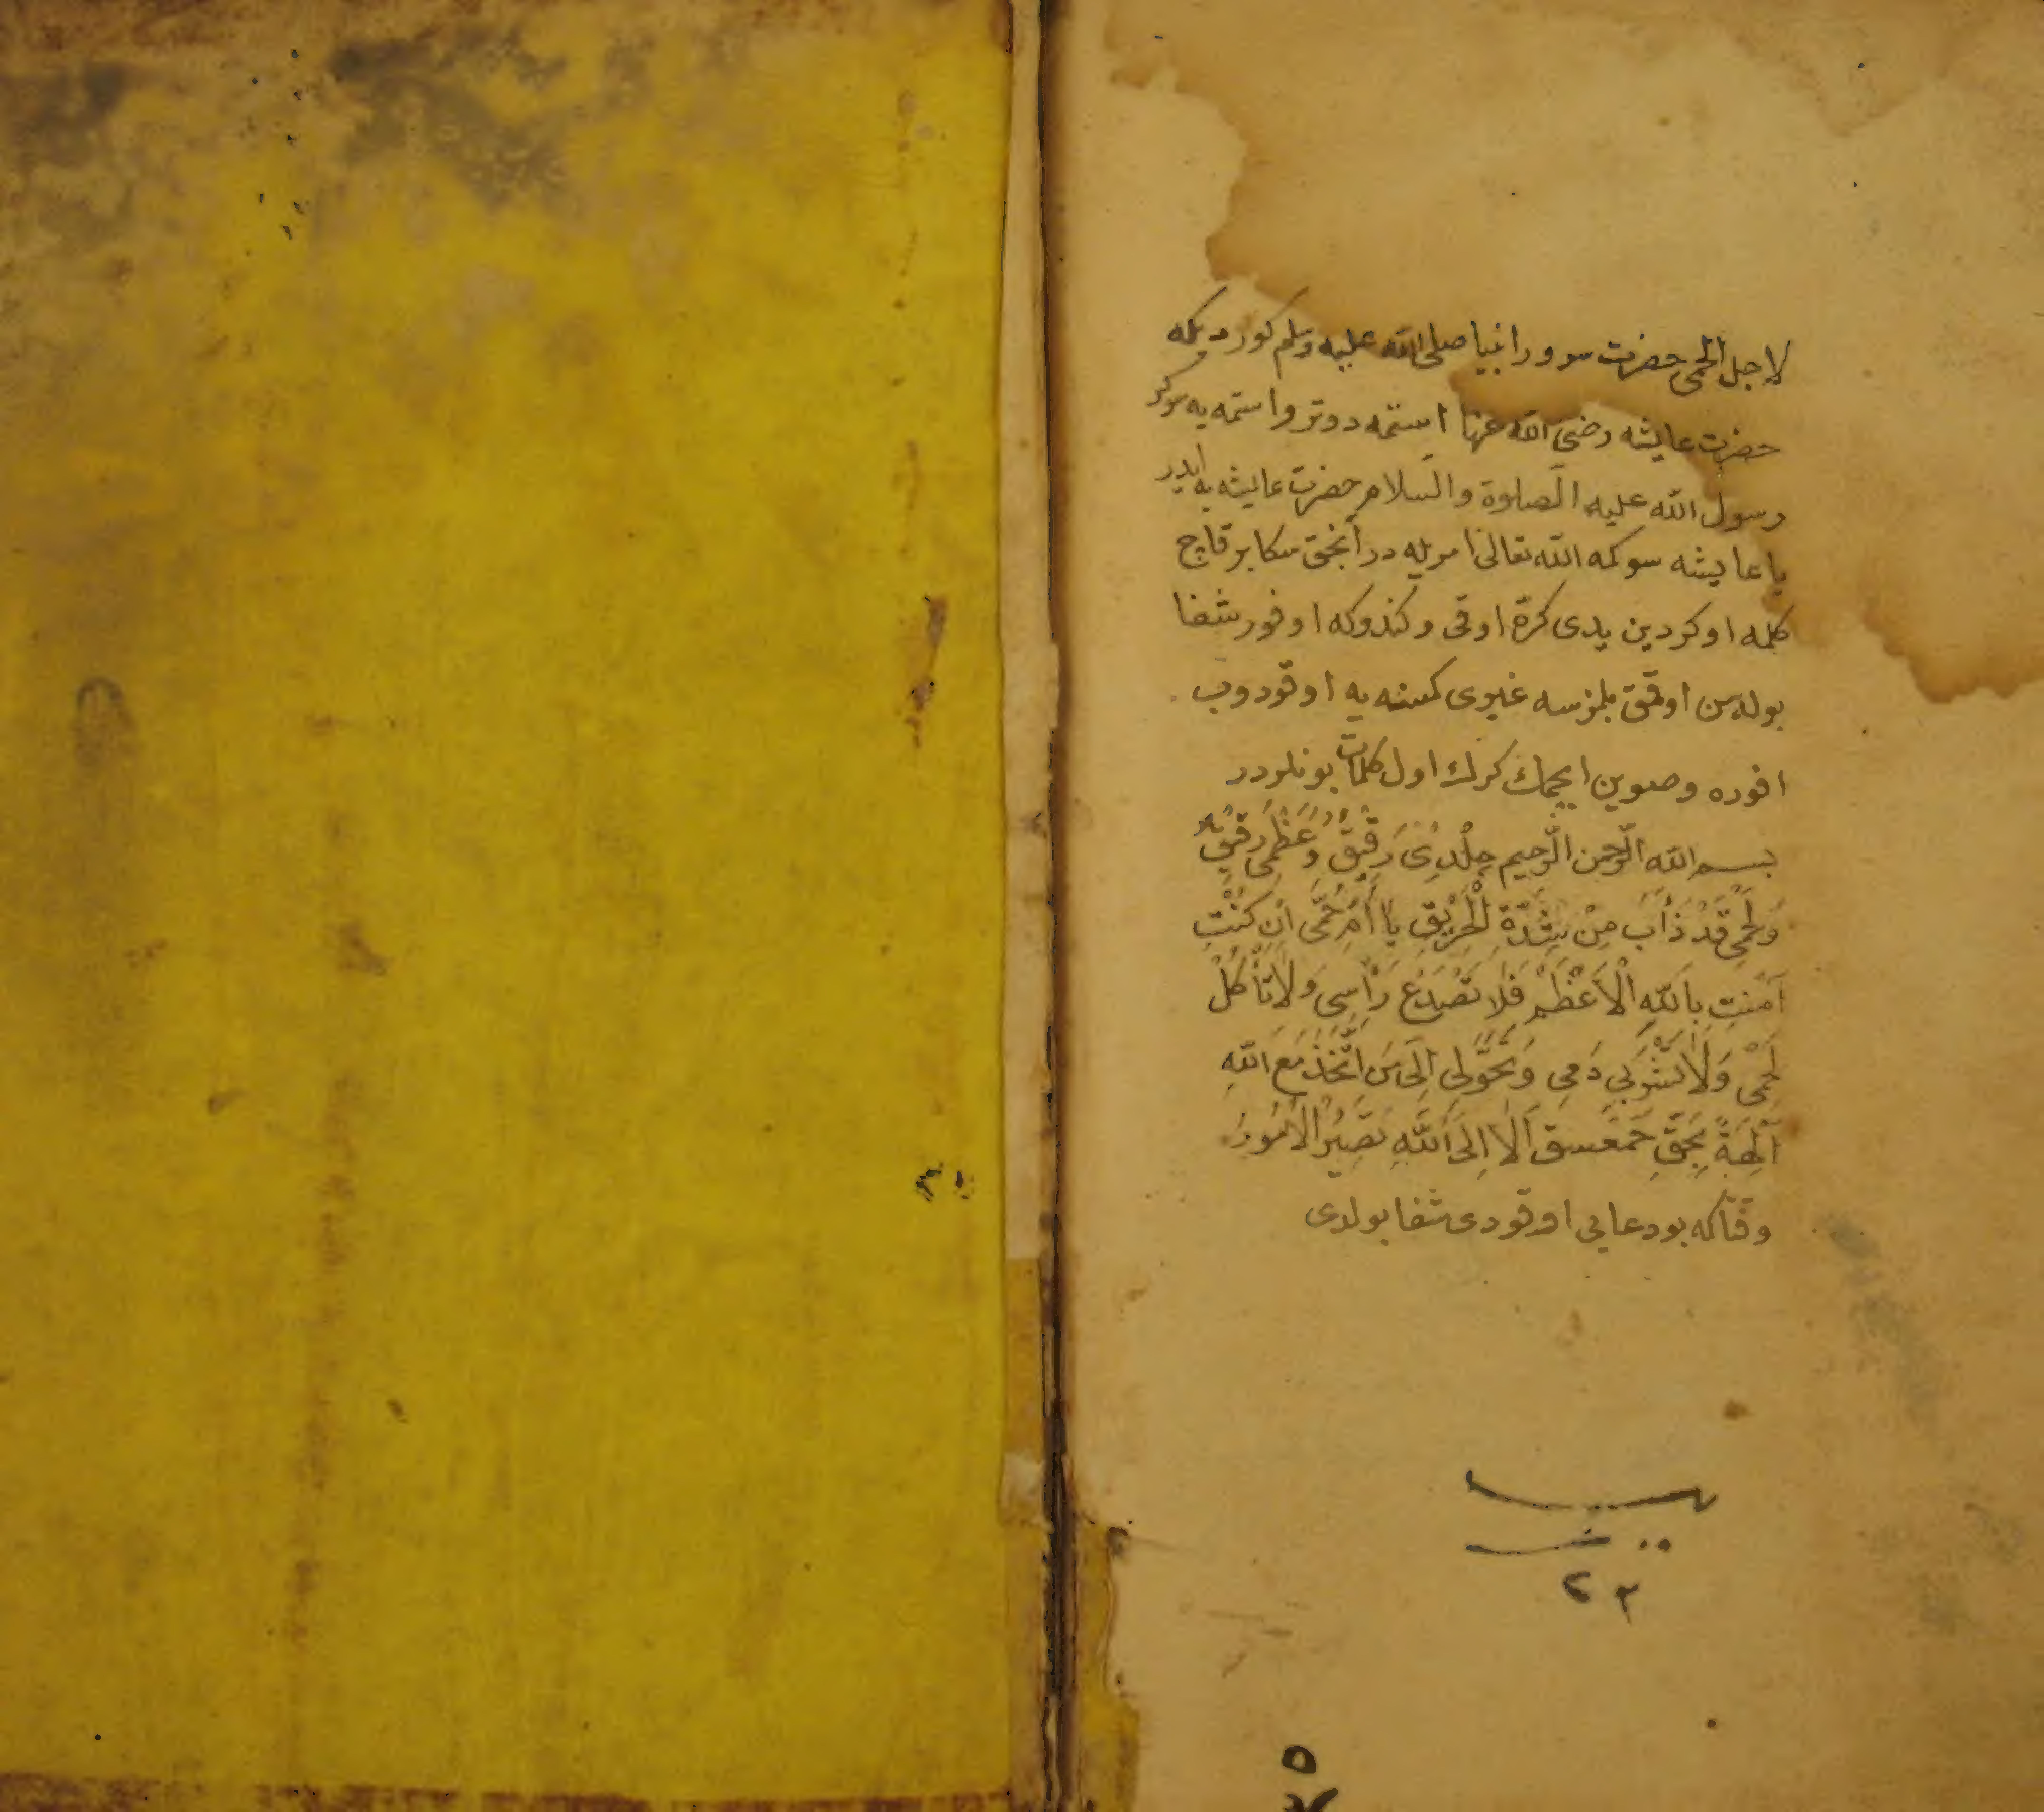 لاجل الحمى حضرت سرور انبيا صلى الله عليه وسلم كورديكه
حضرت عايشه رضى الله عنها استمه دوتر واستمه يه سوكر
رسول الله عليه الصلوة والسلام حضرت عايشه يه ايدر
يا عايشه سوكمه الله تعالى امريله در انجق سكا بر قاچ
كلمه اوكردين يدى كرة اوقى وكندوكه اوفور شفا
بوله سن اوقمق بلمزسه غيرى كمسنه يه اوقودوب
افوره وصوين ايچمك كرك اول كلمات بونلردر
بسم الله الرحمن الرحيم جِلْدِى رَقِيقٌ وَعَظْمِى دَقِيقٌ
وَلَحْمِى قَدْ ذَابَ مِنْ شِدَّةِ الْحَرِيقِ يَا أُمَّ حُمَّى اِنْ كُنْتِ
آمَنْتِ بِاللهِ الْاَعْظَمِ فَلَا تَصْدَعْ رَأْسِى وَلَا تَأْكُلْ
لَحْمِى وَلَا تَشْرَبِي دَمِى وَتَحَوَّلِى اِلَى مَنِ اتَّخَذَ مَعَ اللهِ
آلِهَةً بِحَقِّ حمعسق اَلَا اِلَى اللهِ تَصِيرُ الْاُمُورُ
وقتاكه بو دعايى اوقودى شفا بولدى